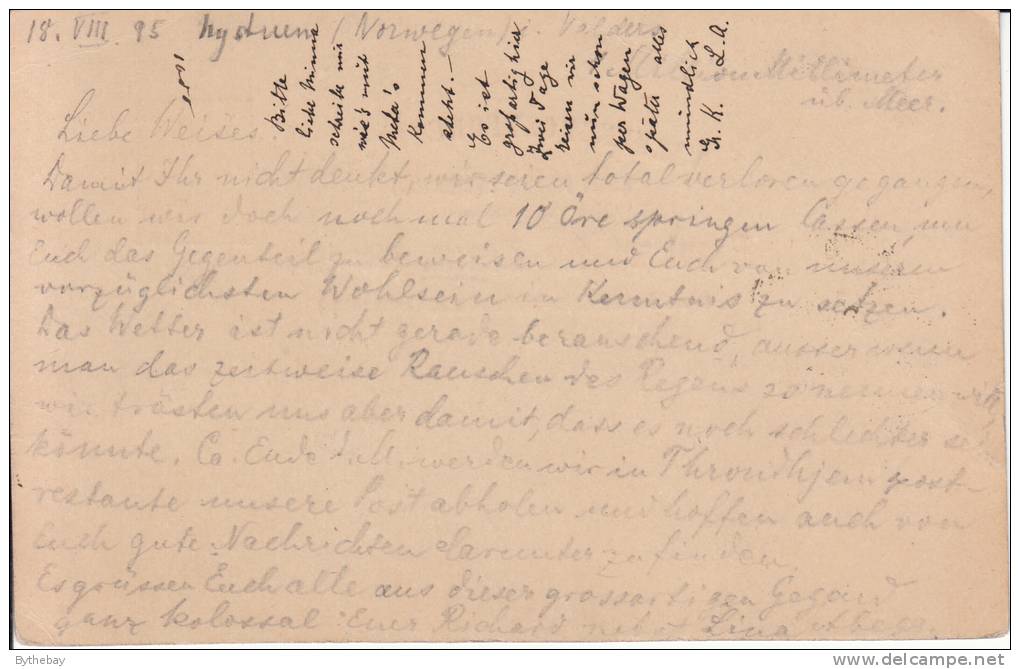 18. VIII. 95 Nystuen (Norwegen) i. Valders
1 Million Millimeter
üb. Meer.
Liebe Weises.
Damit Ihr nicht denkt, wir seien total verloren gegangen,
wollen wir doch noch mal 10 Öre springen lassen, um
Euch das Gegenteil zu beweisen und Euch von unserem
vorzüglichsten Wohlsein in Kenntnis zu setzen.
Das Wetter ist nicht gerade berauschend, ausser wenn
man das zeitweise Rauschen des Regens so nennen will,
wir trösten uns aber damit, dass es noch schlechter sein
könnte. Ca. Ende d. M. werden wir in Throndhjem post-
restante unsere Post abholen und hoffen auch von
Euch gute Nachrichten darunter zu finden.
Es grüssen Euch alle aus dieser grossartigen Gegend
ganz kolossal Euer Richard nebst Lina
Bitte
liebe Minna
schreibe mir
wie's mit
Meta's
Kommen
steht. —
Es ist
großartig hier
Zwei Tage
reisen wir
nun schon
per Wagen
später alles
mündlich
Gr. K. L. A.
Bythebay
www.delcampe.net